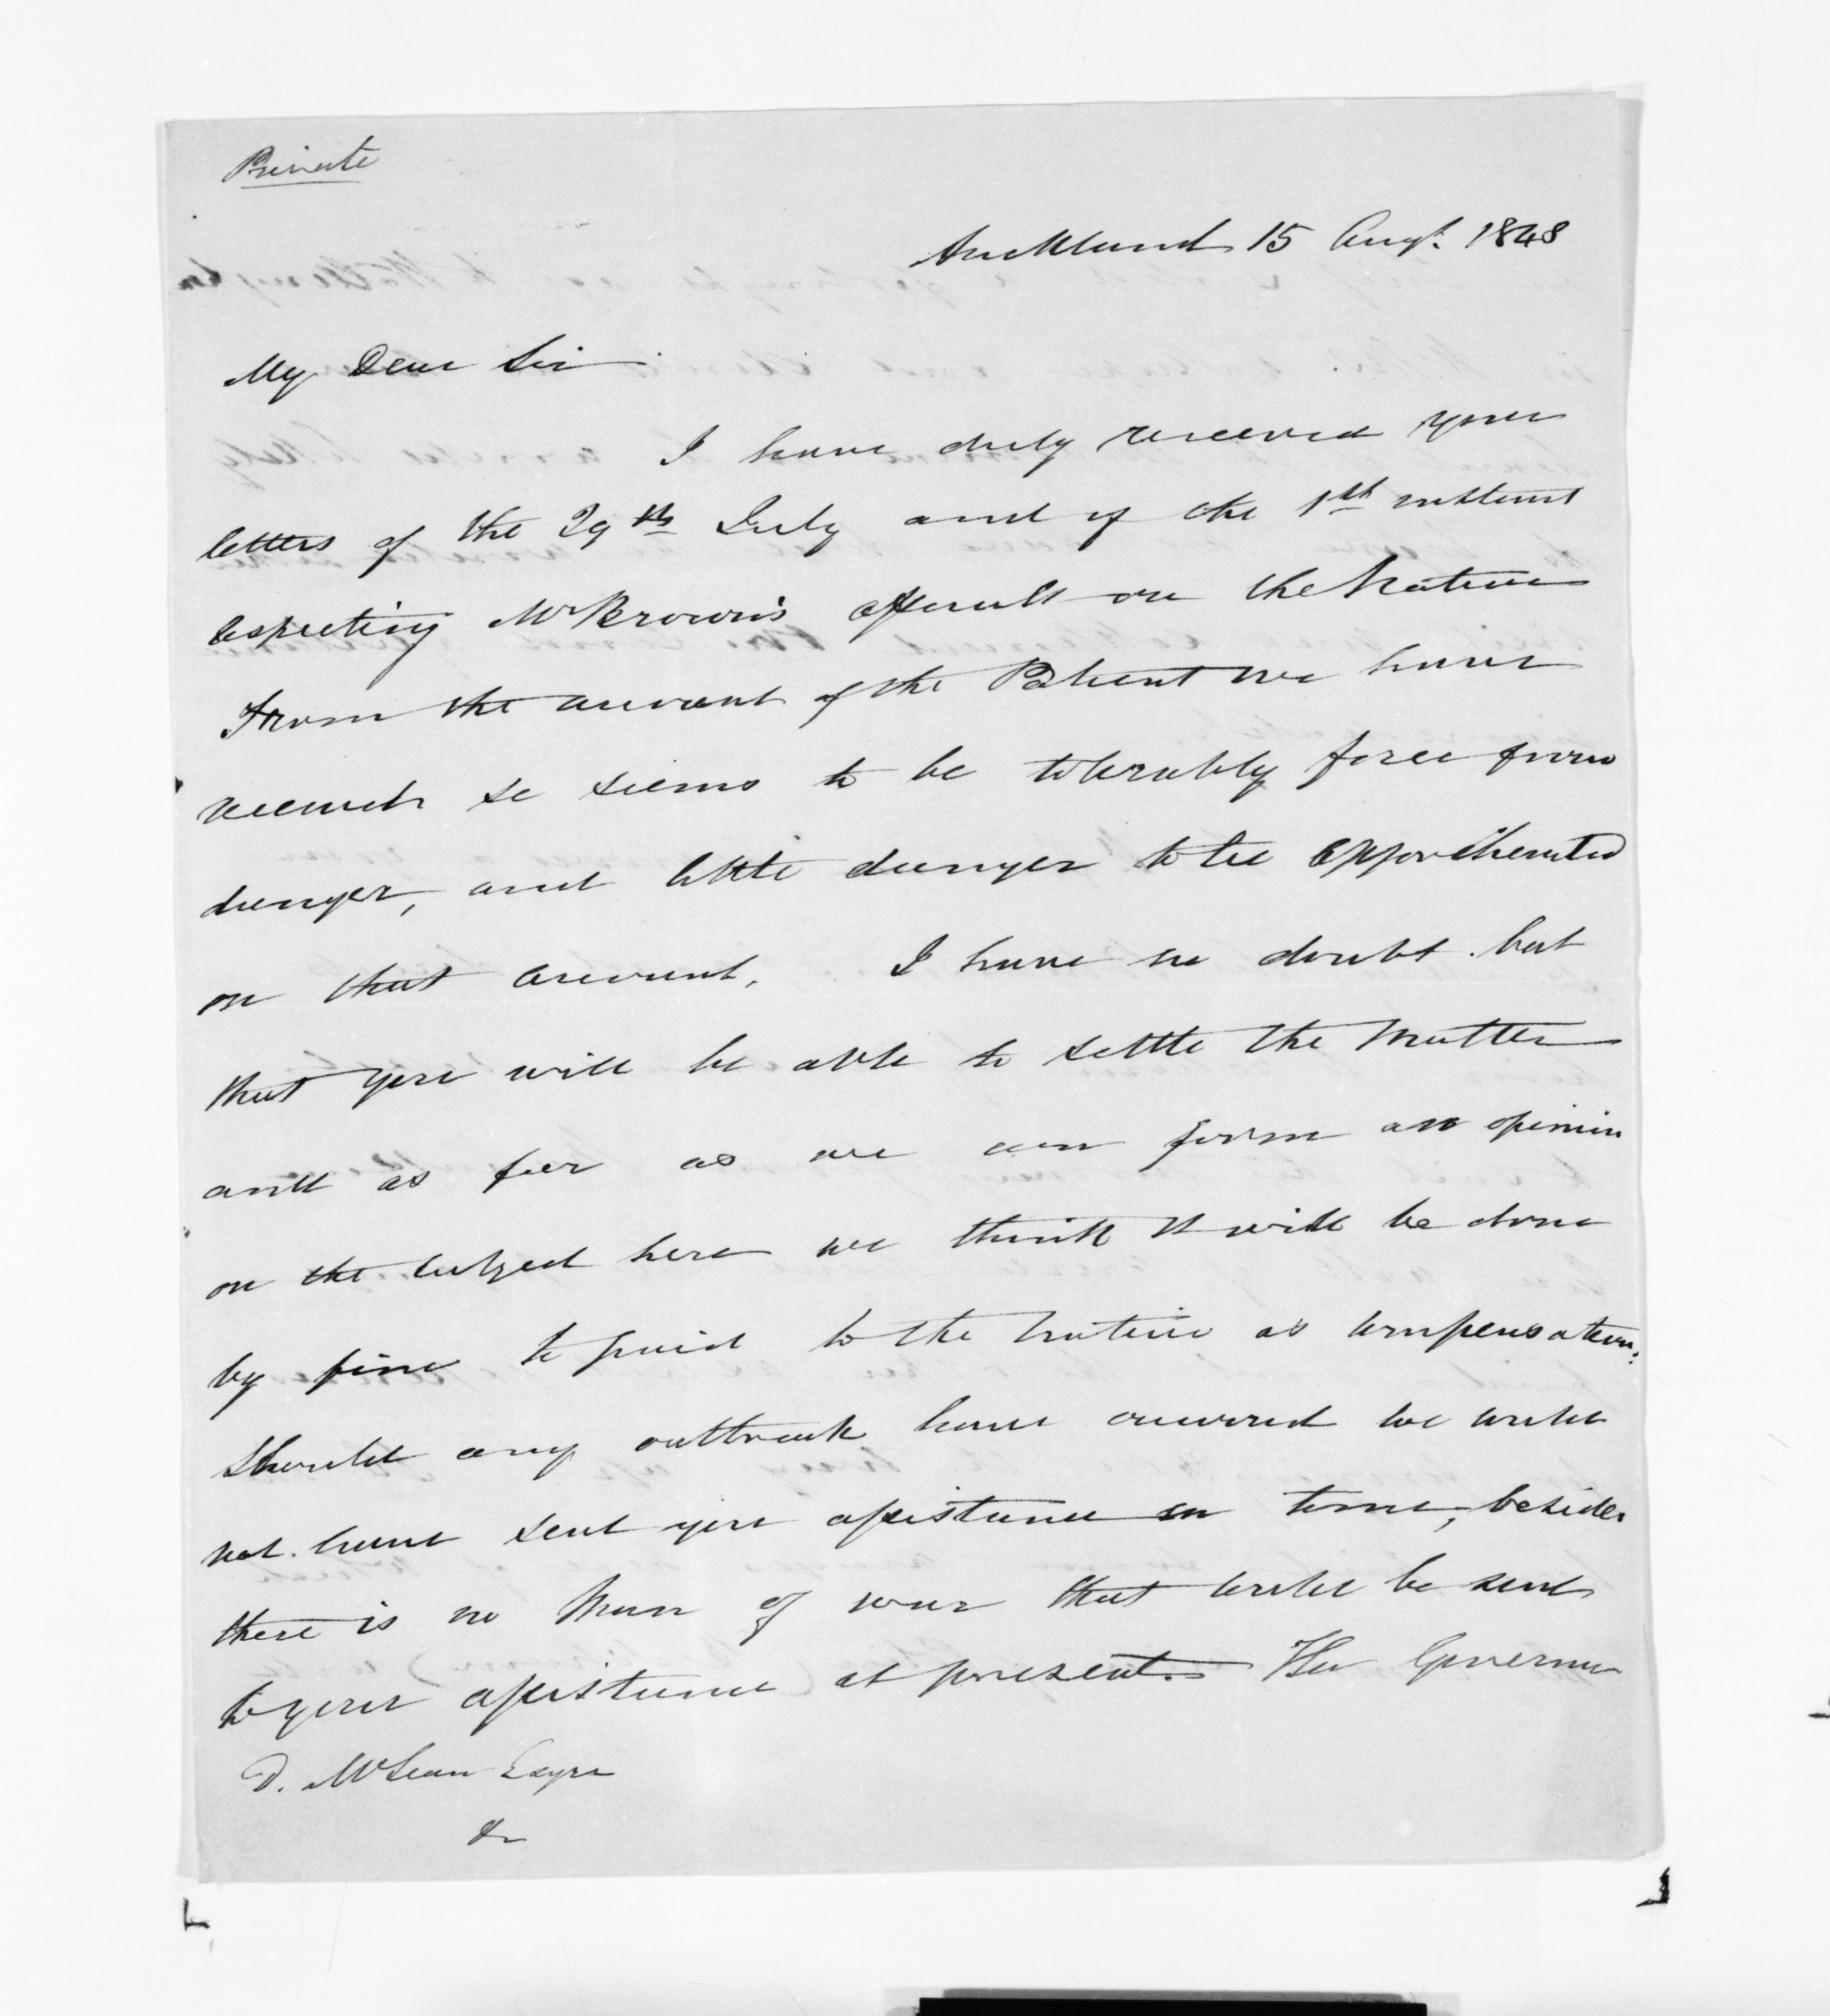 Private
Auckland 15 Augt. 1848
My Dear Sir
I have duly received your
letters of the 29th July and of the 1st instant
respecting Mr Brown's assault on the Native
From the account of the Patient we have
received he seems to be tolerably free from
danger, and little danger to be apprehended
on that account. I have no doubt but
that you will be able to settle the matter
and as far as we can form an opinion
on the subject here we think it will be done
by fine to paid to the native as compensation.
Should any outbreak have occurred we could
not have sent you assistance in time, besides
there is no Man of war that could be sent
to your assistance at present. The Governor
D. McLean Esqre
&c